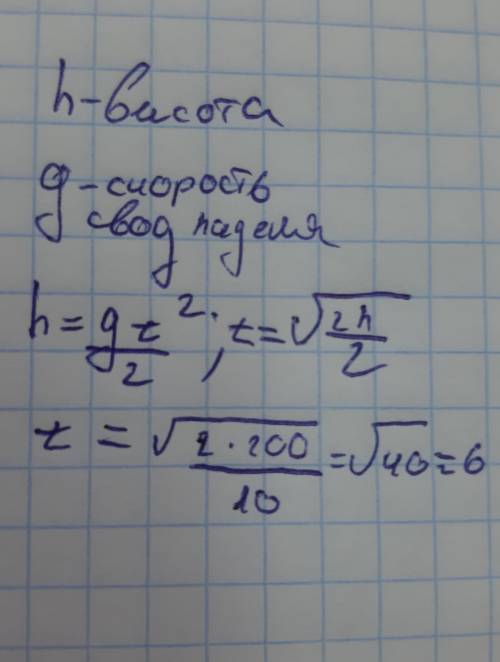 h-высота
g-скорость
свод паделя
h = gt²/2; t = √(2h/2)
t = √(2·200/10) = √40 = 6